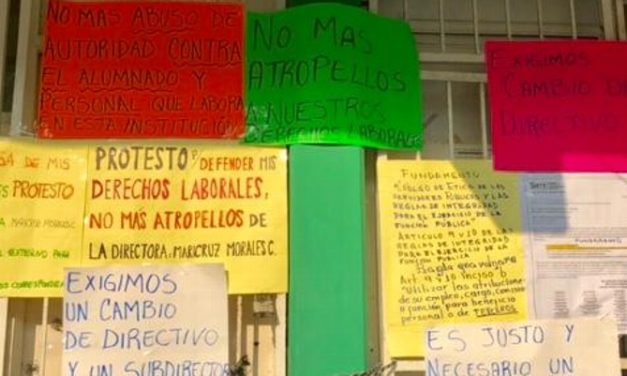 NO MAS ABUSO DE
AUTORIDAD CONTRA
EL ALUMNADO Y
PERSONAL QUE LABORA
EN ESTA INSTITUCIÓN
NO MAS
ATROPELLOS
A NUESTROS
DERECHOS LABORALES
EXIGIMOS
CAMBIO DE
DIRECTIVO
SA DE MIS
PROTESTO
MARICRUZ MORALES C.
PROTESTO P/ DEFENDER MIS
DERECHOS LABORALES,
NO MÁS ATROPELLOS DE
LA DIRECTORA. MARICRUZ MORALES C.
FUNDAMENTO
CÓDIGO DE ETICA DE LOS
SERVIDORES PÚBLICOS Y LAS
REGLAS DE INTEGRIDAD
PARA EL EJERCICIO DE LA
FUNCIÓN PÚBLICA
ARTICULO 9 Y 10 DE LAS
REGLAS DE INTEGRIDAD
PARA EL EJERCICIO DE LA
FUNCIÓN PÚBLICA
que vulnera
Art 9 y 10 inciso b
Utilizar las atribuciones
de su empleo, cargo, comisión
o función para beneficio
personal o de TERCEROS
EXIGIMOS
UN CAMBIO
DE DIRECTIVO
Y UN SUBDIRECTOR
ES JUSTO Y
NECESARIO UN